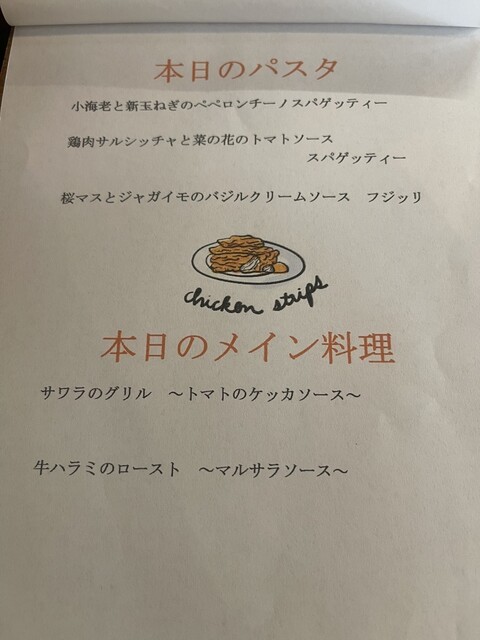 本日のパスタ
小海老と新玉ねぎのペペロンチーノスパゲッティー
鶏肉サルシッチャと菜の花のトマトソース
スパゲッティー
桜マスとジャガイモのバジルクリームソース　フジッリ
chicken strips
本日のメイン料理
サワラのグリル　～トマトのケッカソース～
牛ハラミのロースト　～マルサラソース～